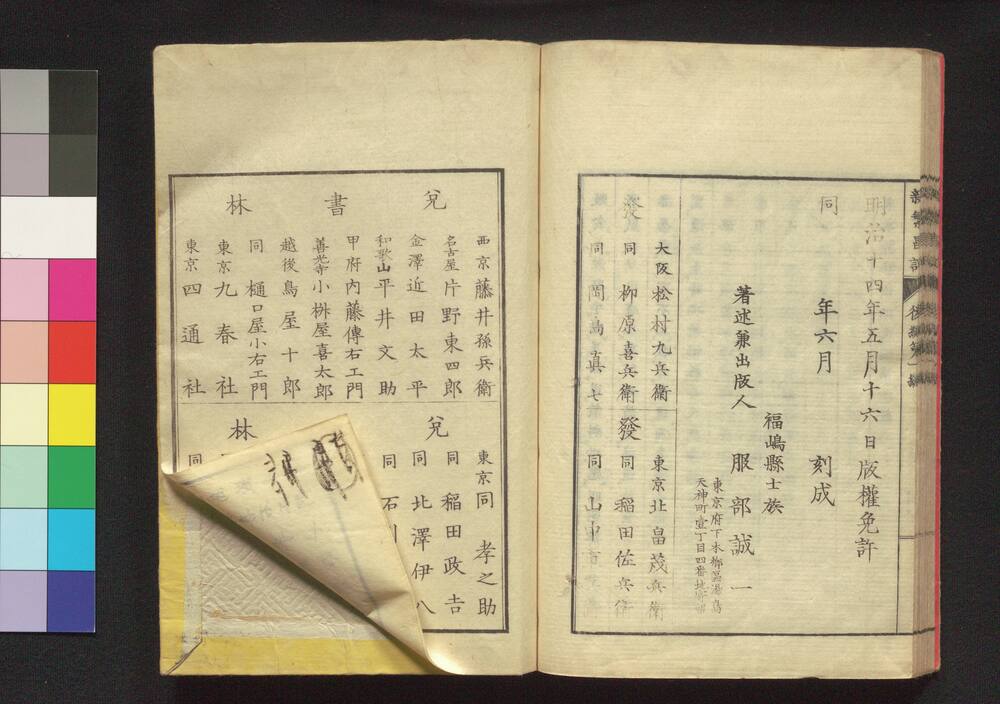 明治十四年五月十六日版權免許
同年六月刻成
福嶋縣士族
著述兼出版人 服部誠一
東京府下本郷區湯島
天神町壹丁目四番地
大阪 松村九兵衛
東京 北畠茂兵衛
發
同 柳原喜兵衛
發
同 稲田佐兵衛
同 岡島真七
同 山中
兌書林
西京 藤井孫兵衛
名古屋 片野東四郎
金澤 近田太平
和歌山 平井文助
甲府 内藤傳右エ門
善光寺 小桝屋喜太郎
越後 鳥屋十郎
同 樋口屋小右エ門
東京 九春社
東京 四通社
兌
林
東京 同 孝之助
同 稲田政吉
同 北澤伊八
同 石
同